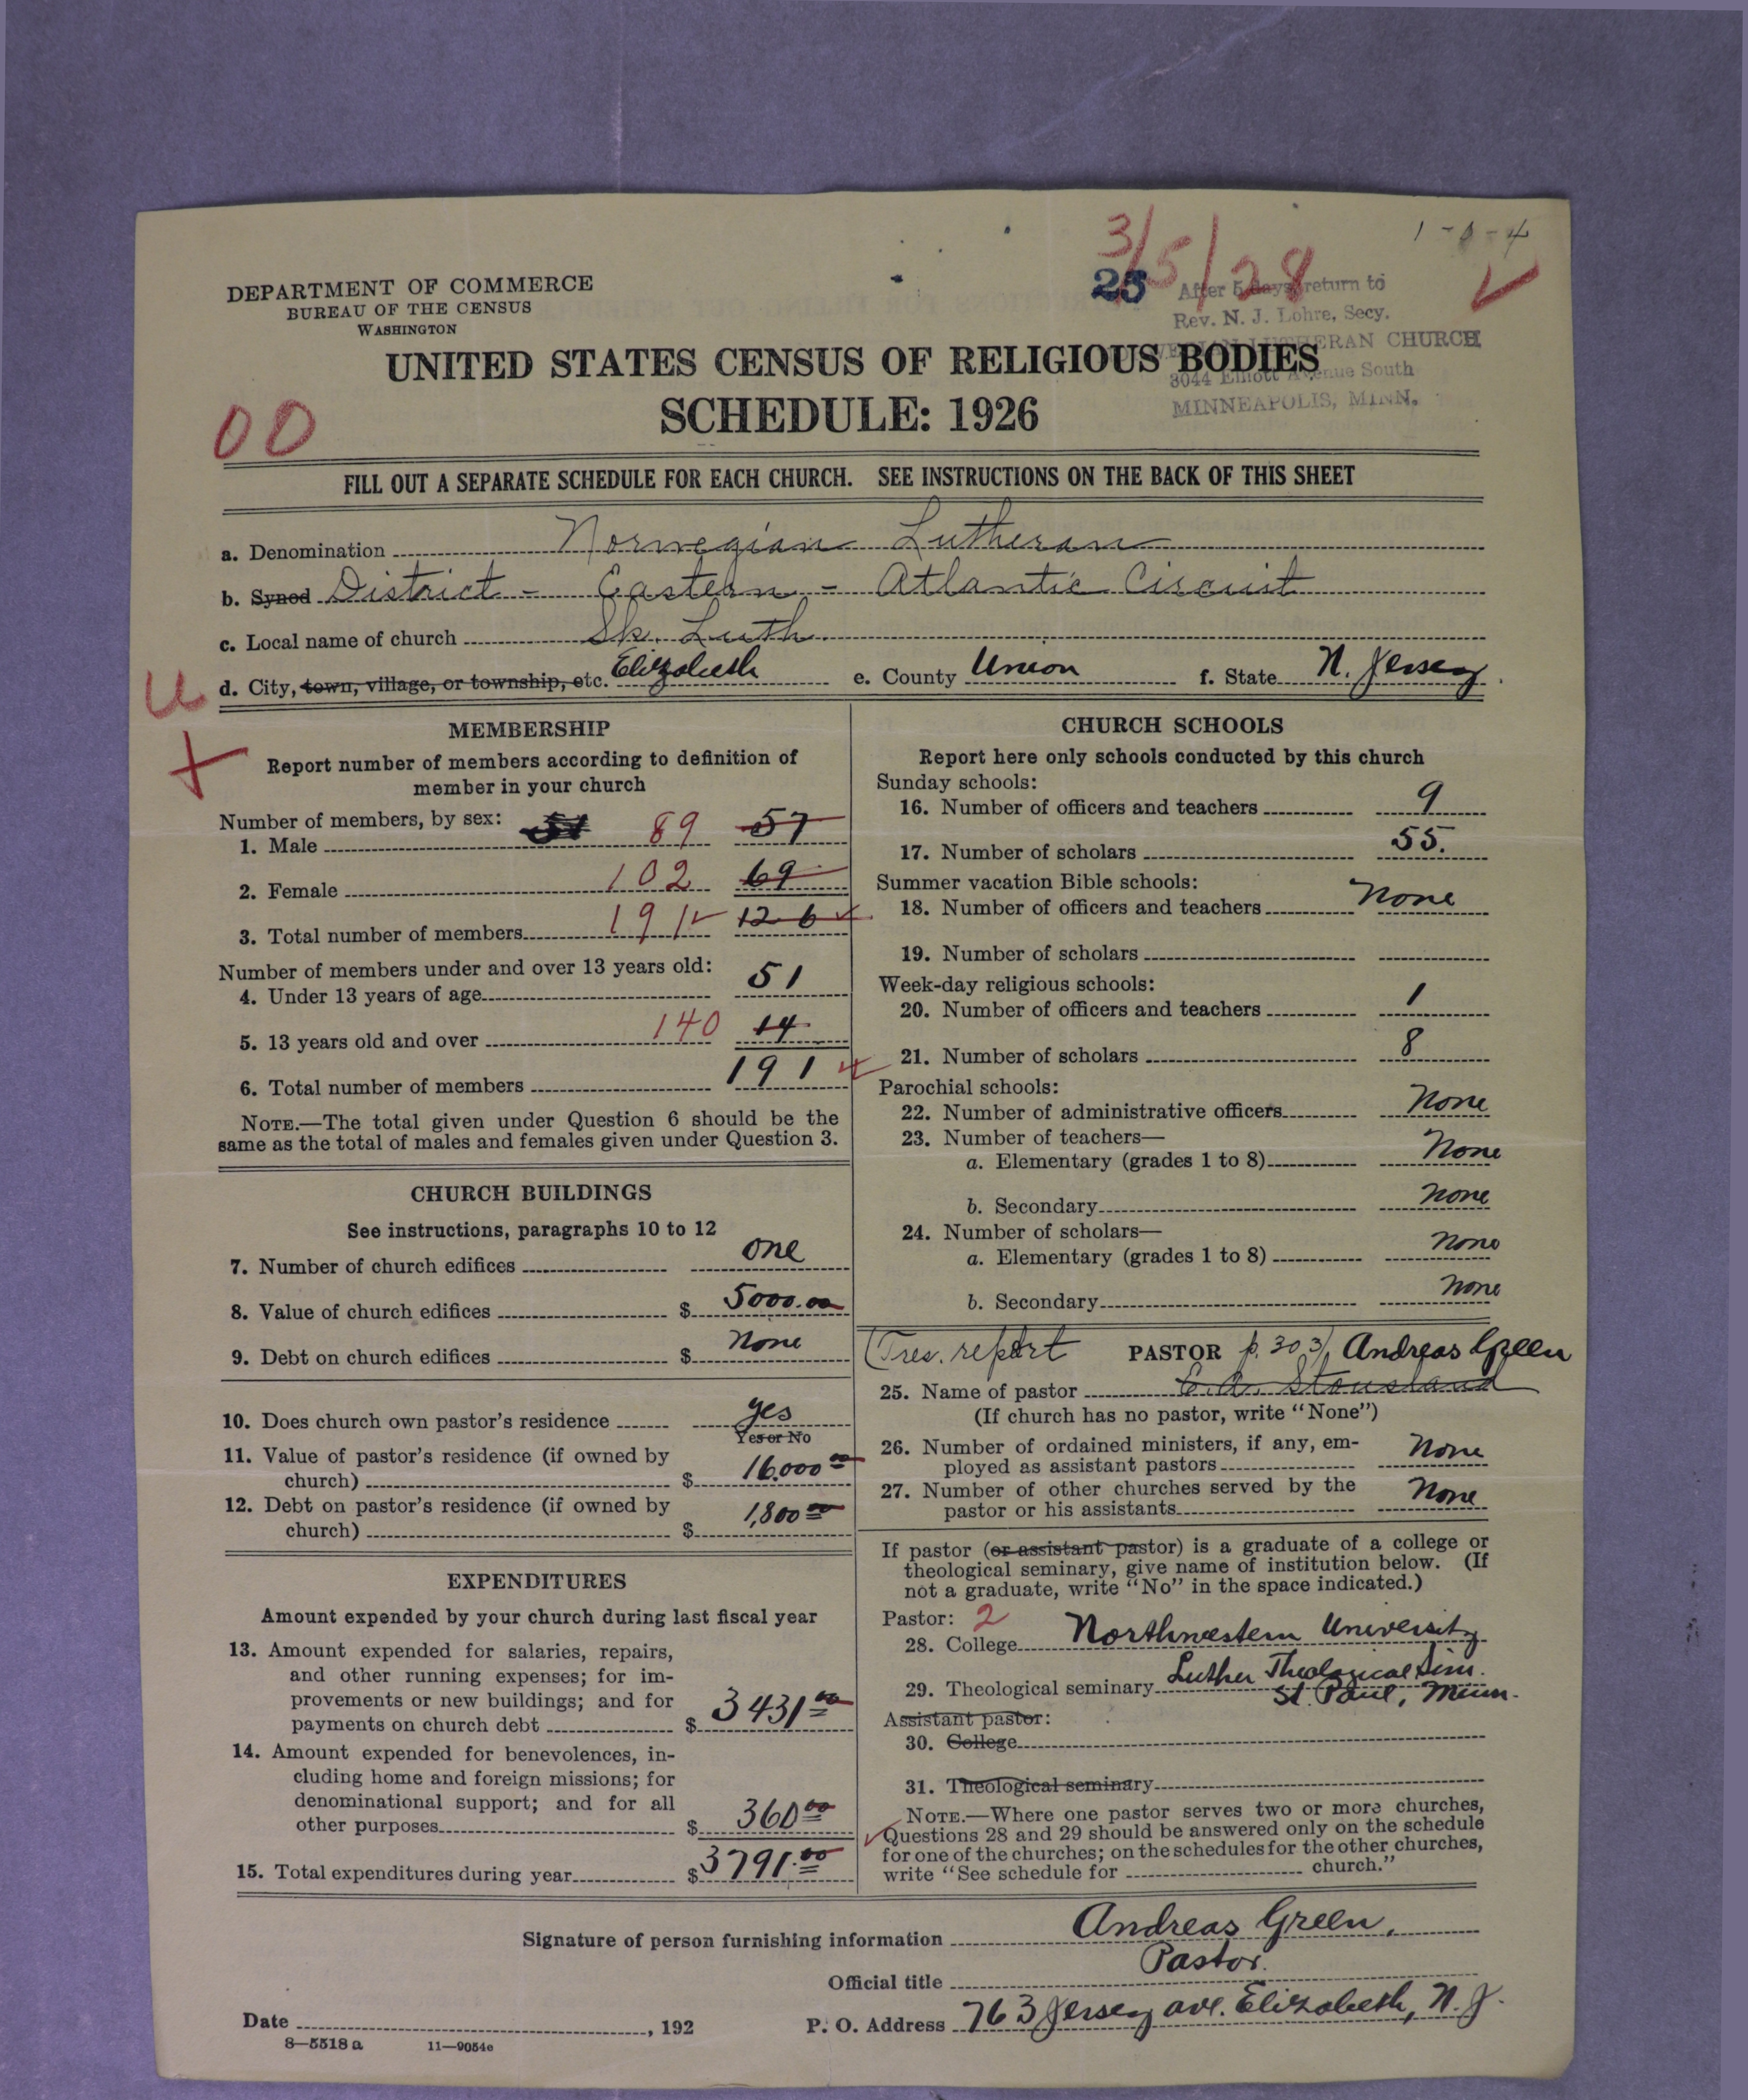 1-0-4
3/5/28
25
After 5 days return to
Rev. N. J. Lohre, Secy.
LUTHERAN CHURCH
3044 Elliott Avenue South
MINNEAPOLIS, MINN.
DEPARTMENT OF COMMERCE
BUREAU OF THE CENSUS
WASHINGTON
UNITED STATES CENSUS OF RELIGIOUS BODIES
SCHEDULE: 1926
00
FILL OUT A SEPARATE SCHEDULE FOR EACH CHURCH. SEE INSTRUCTIONS ON THE BACK OF THIS SHEET
a. Denomination Norwegian Lutheran
b. Synod District - Eastern - Atlantic Circuit
c. Local name of church Sk. Luth
d. City, town, village, or township, etc. Elizabeth e. County Union f. State N. Jersey.
U
MEMBERSHIP
Report number of members according to definition of
member in your church
Number of members, by sex:
1. Male 89 57
2. Female 102 69
3. Total number of members 191 126
Number of members under and over 13 years old:
4. Under 13 years of age 51
5. 13 years old and over 140 14
6. Total number of members 191
NOTE.—The total given under Question 6 should be the
same as the total of males and females given under Question 3.
CHURCH BUILDINGS
See instructions, paragraphs 10 to 12
7. Number of church edifices one
8. Value of church edifices $ 5000.00
9. Debt on church edifices $ None
10. Does church own pastor's residence yes
Yes or No
11. Value of pastor's residence (if owned by
church) $ 16,000 00
12. Debt on pastor's residence (if owned by
church) $ 1,800 00
EXPENDITURES
Amount expended by your church during last fiscal year
13. Amount expended for salaries, repairs,
and other running expenses; for im-
provements or new buildings; and for
payments on church debt $ 3431 00
14. Amount expended for benevolences, in-
cluding home and foreign missions; for
denominational support; and for all
other purposes $ 360 00
15. Total expenditures during year $ 3791.00
CHURCH SCHOOLS
Report here only schools conducted by this church
Sunday schools:
16. Number of officers and teachers 9
17. Number of scholars 55.
Summer vacation Bible schools:
18. Number of officers and teachers None
19. Number of scholars
Week-day religious schools:
20. Number of officers and teachers 1
21. Number of scholars 8
Parochial schools:
22. Number of administrative officers None
23. Number of teachers—
a. Elementary (grades 1 to 8) None
b. Secondary None
24. Number of scholars—
a. Elementary (grades 1 to 8) None
b. Secondary None
(Pres. report PASTOR p. 303) Andreas Green
25. Name of pastor C. A. Stousland
(If church has no pastor, write "None")
26. Number of ordained ministers, if any, em-
ployed as assistant pastors None
27. Number of other churches served by the
pastor or his assistants None
If pastor (or assistant pastor) is a graduate of a college or
theological seminary, give name of institution below. (If
not a graduate, write "No" in the space indicated.)
Pastor: 2
28. College Northwestern University
29. Theological seminary Luther Theological Sem.
St. Paul, Minn.
Assistant pastor:
30. College
31. Theological seminary
NOTE.—Where one pastor serves two or more churches,
Questions 28 and 29 should be answered only on the schedule
for one of the churches; on the schedules for the other churches,
write "See schedule for church."
Signature of person furnishing information Andreas Green,
Official title Pastor.
Date , 192 P. O. Address 763 Jersey ave. Elizabeth, N. J.
8—5518 a 11—9054c